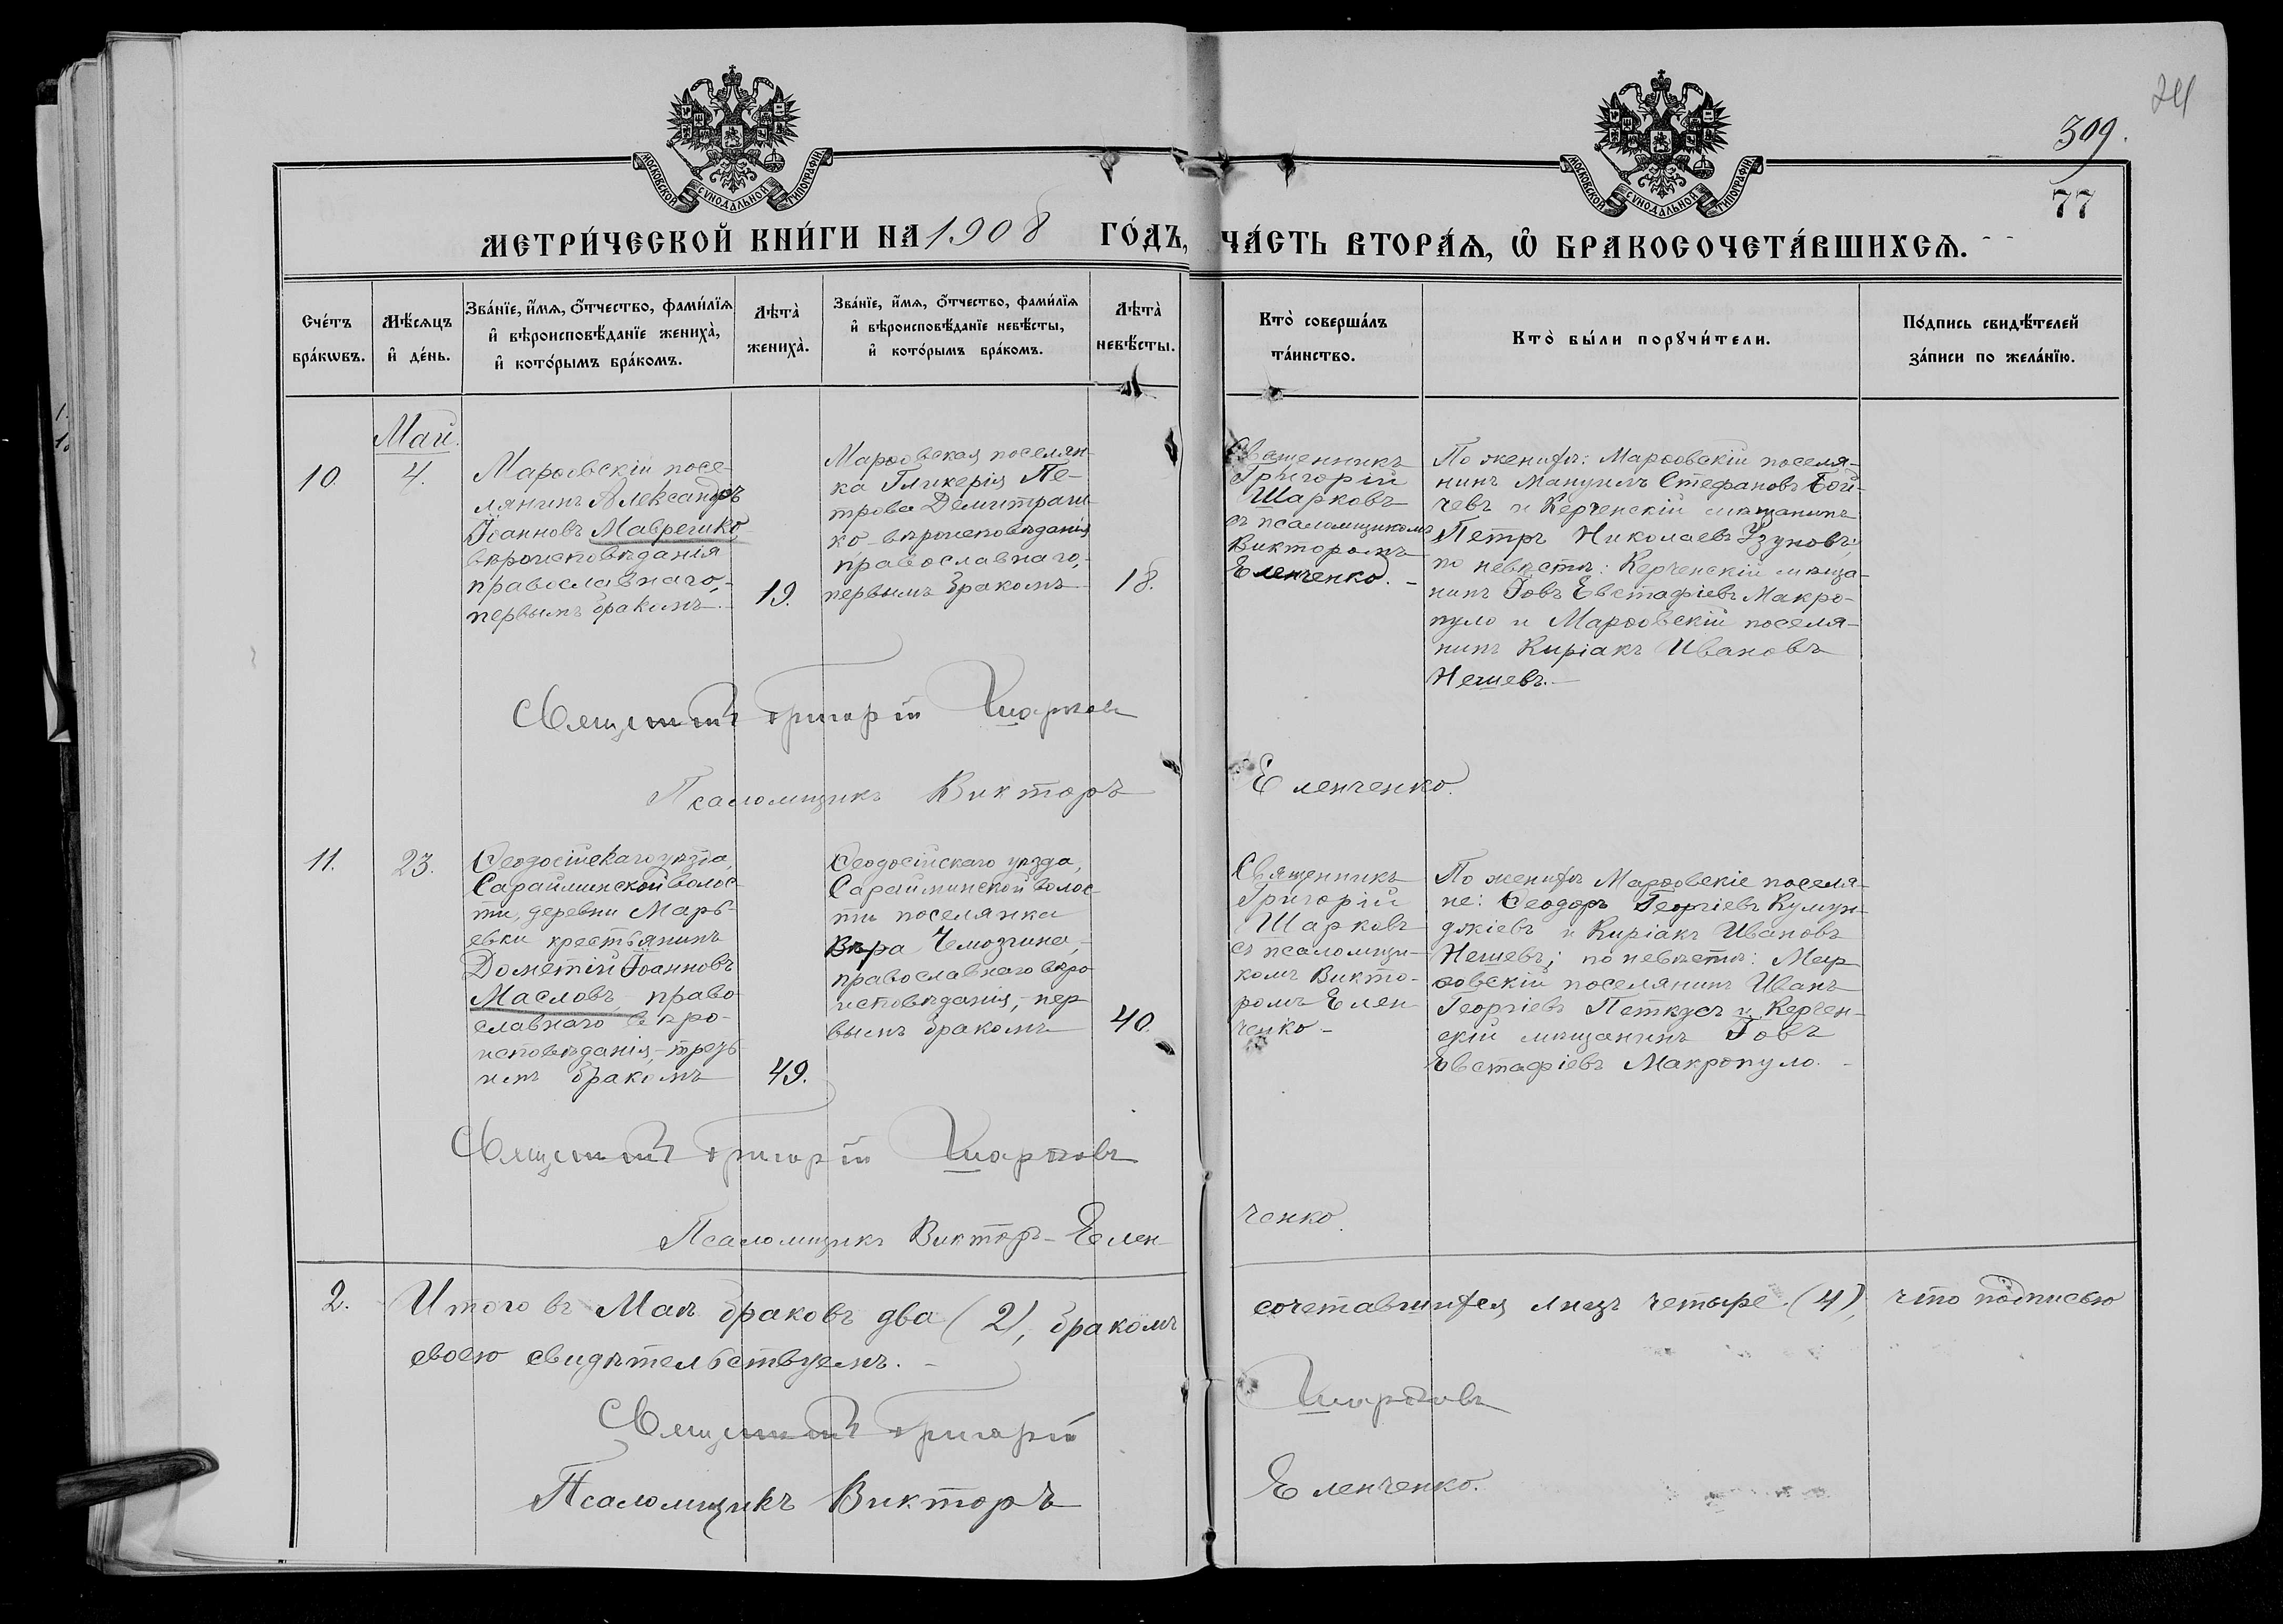 24
309.
77
МОСКОВСКОЙ СѴНОДАЛЬНОЙ ТИПОГРАФІИ
МОСКОВСКОЙ СѴНОДАЛЬНОЙ ТИПОГРАФІИ
МЕТРИ́ЧЕСКОЙ КНИ́ГИ НА 1908 ГО́ДЪ, ЧА́СТЬ ВТОРА́Ѧ, Ѡ҆ БРАКОСОЧЕТА́ВШИХСѦ.
Сче́тъ
бра́кѡвъ.
Мѣ́сѧцъ
и҆ де́нь.
Зва́нїе, и҆́мѧ, ѻ҆́тчество, фами́лїѧ
и҆ вѣроисповѣ́данїе жениха̀,
и҆ кото́рымъ бра́комъ.
Лѣта̀
жениха̀.
Зва́нїе, и҆́мѧ, ѻ҆́тчество, фами́лїѧ
и҆ вѣроисповѣ́данїе невѣ́сты,
и҆ кото́рымъ бра́комъ.
Лѣта̀
невѣ́сты.
Кто̀ соверша́лъ
та́инство.
Кто̀ бы́ли порꙋчи́тели.
По́дпись свидѣ́телей
за́писи по жела́нїю.
Май.
10.
4.
Марѳовскій посе-
лянинъ Александръ
Іоанновъ Маврешко,
вѣроисповѣданія
православнаго,-
первымъ бракомъ.-
19.
Марѳовская поселян-
ка Гликерія Пе-
трова Демитраш-
ко-вѣроисповѣданія
православнаго,-
первымъ бракомъ-
18.
Священникъ
Григорій
Шарковъ
съ псаломщикомъ
Викторомъ
Еленченко.-
По женихѣ: Марѳовскій поселя-
нинъ Мануилъ Стефановъ Бой-
чевъ и Керченскій мѣщанинъ
Петръ Николаевъ Узуновъ;
по невѣстѣ: Керченскій мѣща-
нинъ Іовъ Евстафіевъ Макро-
пуло и Марѳовскій поселя-
нинъ Киріакъ Ивановъ
Нешевъ.-
Священникъ Григорій Шарковъ
Псаломщикъ Викторъ Еленченко.
11.
23.
Ѳеодосійскаго уѣзда,
Сарайминской волос-
ти, деревни Марь-
евки крестьянинъ
Дометій Іоанновъ
Масловъ право-
славнаго вѣро-
исповѣданія,-треть-
имъ бракомъ
49.
Ѳеодосійскаго уѣзда,
Сарайминской волос-
ти поселянка
Вѣра
православнаго вѣро-
исповѣданія,-пер
вымъ бракомъ
40.
Священникъ
Григорій
Шарковъ
съ псаломщи-
комъ Викто-
ромъ Елен
ченко-
По женихѣ Марѳовскіе поселя-
не: Ѳеодоръ Георгіевъ Кумун-
джіевъ и Киріакъ Ивановъ
Нешевъ; по невѣстѣ: Мар
ѳовскій поселянинъ Иванъ
Георгіевъ Петкусъ и Керчен-
скій мѣщанинъ Іовъ
Евстафіевъ Макропуло.-
Священникъ Григорій Шарковъ
Псаломщикъ Викторъ-Елен
ченко.
2.
Итого въ Маѣ браковъ два (2), бракомъ сочетавшихся лицъ четыре (4), что подписью
своею свидѣтельствуемъ.-
Священникъ Григорій Шарковъ
Псаломщикъ Викторъ Еленченко.